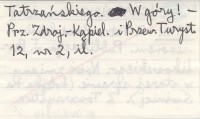 Tatrzańskiego. W góry! –
Prz. Zdroj.-Kąpiel. i Przew. Turyst
12, nr 2, il.